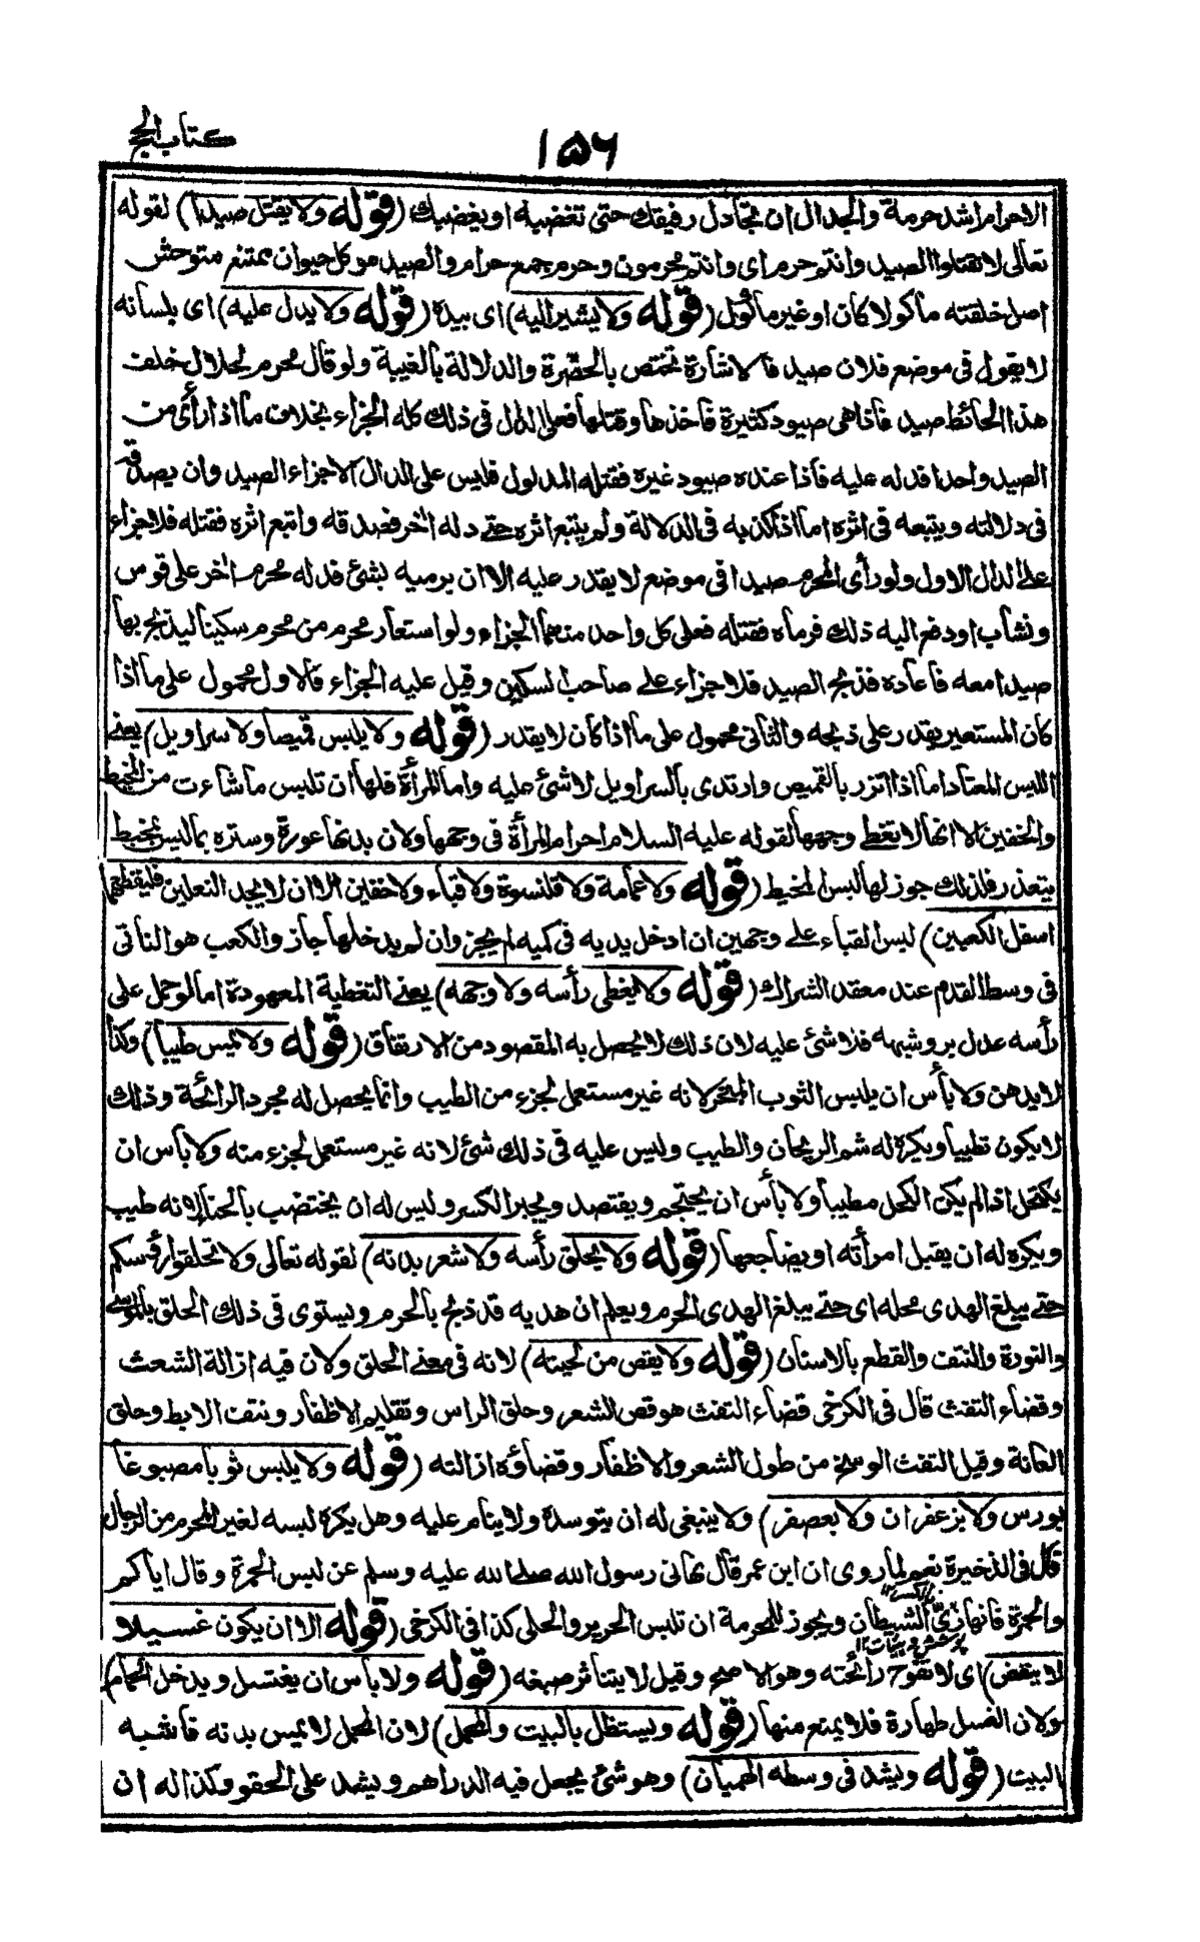 كتاب الحج
١٥٦
الاحرام اشد حرمة والجدال ان تجادل رفيقك حتى تغضبه او يغضبك (قوله ولا يقتل صيدا) لقوله
تعالى لا تقتلوا الصيد وانتم حرم اى وانتم محرمون وحرم جمع حرام والصيد هو كل حيوان ممتنع متوحش
اصل خلقته ماكولا كان او غير مأكول (قوله ولا يشير اليه) اى بيده (قوله ولا يدل عليه) اى بلسانه
لا يقول فى موضع فلان صيد فالاشارة تختص بالحضرة والدلالة بالغيبة ولو قال محرم لحلال خلف
هذا الحائط صيد فاذا هى صيود كثيرة فاخذها وقتلها فعلى الدال فى ذلك كله الجزاء بخلاف ما اذا رأى من
الصيد واحدا فدله عليه فاذا عنده صيود غيره فقتله المدلول فليس على الدال الا جزاء الصيد وان يصدقه
فى دلالته ويتبعه فى اثره اما اذا كذبه فى الدلالة ولم يتبع اثره حتى دله اخر فصدقه واتبع اثره فقتله فلا جزاء
على الدال الاول ولو رأى المحرم صيدا فى موضع لا يقدر عليه الا ان يرميه بشئ فدله محرم اخر على قوس
ونشاب او دفع اليه ذلك فرماه فقتله فعلى كل واحد منهما الجزاء ولو استعار محرم من محرم سكينا ليذبح بها
صيدا معه فاعاده فذبح الصيد فلا جزاء على صاحب السكين وقيل عليه الجزاء فالاول محمول على ما اذا
كان المستعير يقدر على ذبحه والثانى محمول على ما اذا كان لا يقدر (قوله ولا يلبس قميصا ولا سراويل) يعنى
اللبس المعتاد اما اذا اتزر بالقميص وارتدى بالسراويل لا شئ عليه واما المرأة فلها ان تلبس ما شاءت من المخيط
والخفين الا انها لا تغطى وجهها لقوله عليه السلام احرام المرأة فى وجهها ولان بدنها عورة وستره بما ليس بمخيط
يتعذر فلذلك جوز لها لبس المخيط (قوله ولا عمامة ولا قلنسوة ولا قباء ولا خفين الا ان لا يجد النعلين فليقطعهما
اسفل الكعبين) لبس القباء على وجهين ان ادخل يديه فى كميه لم يجز وان لم يدخلها جاز والكعب هو الناتى
فى وسط القدم عند معقد الشراك (قوله ولا يغطى رأسه ولا وجهه) يعنى التغطية المعهودة اما لو حمل على
رأسه عدل بر وشبهه فلا شئ عليه لان ذلك لا يحصل به المقصود من الارتفاق (قوله ولا يمس طيبا) وكذا
لا يدهن ولا بأس ان يلبس الثوب المبخر لانه غير مستعمل لجزء من الطيب وانما يحصل له مجرد الرائحة وذلك
لا يكون تطيبا ويكره له شم الريحان والطيب وليس عليه فى ذلك شئ لانه غير مستعمل لجزء منه ولا بأس ان
يكتحل اذا لم يكن الكحل مطيبا ولا بأس ان يحتجم ويفتصد ويجبر الكسر وليس له ان يختضب بالحناء لانه طيب
ويكره له ان يقبل امرأته او يضاجعها (قوله ولا يحلق رأسه ولا شعر بدنه) لقوله تعالى ولا تحلقوا رؤسكم
حتى يبلغ الهدى محله اى حتى يبلغ الهدى الحرم ويعلم ان هديه قد ذبح بالحرم ويستوى فى ذلك الحلق بالموسى
والنورة والنتف والقطع بالاسنان (قوله ولا يقص من لحيته) لانه فى معنى الحلق ولان فيه ازالة الشعث
وقضاء التفث قال فى الكرخى قضاء التفث هو قص الشعر وحلق الراس وتقليم الاظفار ونتف الابط وحلق
العانة وقيل التفث الوسخ من طول الشعر والاظفار وقضاؤه ازالته (قوله ولا يلبس ثوبا مصبوغا
بورس ولا بزعفران ولا بعصفر) ولا ينبغى له ان يتوسده ولا ينام عليه وهل يكره لبسه لغير المحرم من الرجال
قال فى الذخيرة نعم لما روى ان ابن عمر قال نهانى رسول الله صلى الله عليه وسلم عن لبس الحمرة وقال اياكم
والحمرة فانها زى الشيطان ويجوز للمحرمة ان تلبس الحرير والحلى كذا فى الكرخى (قوله الا ان يكون غسيلا
لا ينفض) اى لا تفوح رائحته وهو الاصح وقيل لا يتناثر صبغه (قوله ولا بأس ان يغتسل ويدخل الحمام)
ولان الغسل طهارة فلا يمنع منها (قوله ويستظل بالبيت والمحمل) لان المحمل لا يمس بدنه فاشبه
البيت (قوله ويشد فى وسطه الهميان) وهو شئ يجعل فيه الدراهم ويشد على الحقو وكذا له ان